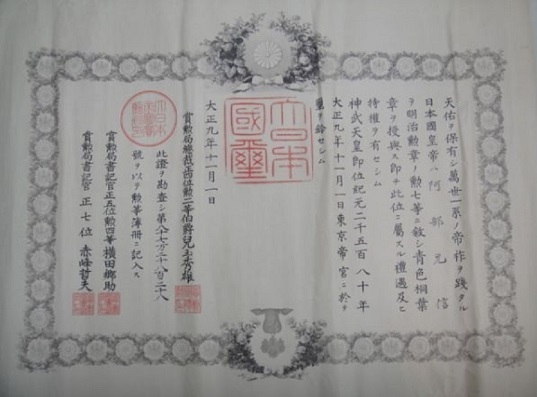 天佑ヲ保有シ萬世一系ノ帝祚ヲ踐タル
日本國皇帝ハ阿部元信
ヲ明治勲章ノ勲七等ニ敍シ青色桐葉
章ヲ授與ス即チ此位ニ屬スル禮遇及ヒ
特權ヲ有セシム
神武天皇即位紀元二千五百八十年
大正九年十一月一日東京帝宮ニ於テ
璽ヲ鈐セシム
大日本國璽
大正九年十一月一日
賞勲局總裁正四位勲二等伯爵兒玉秀雄
此證ヲ勘査シ第八十七万二千八百二十八
號ヲ以テ勲等簿冊ニ記入ス
賞勲局書記官正五位勲四等横田郷助
賞勲局書記官正七位赤峰哲夫